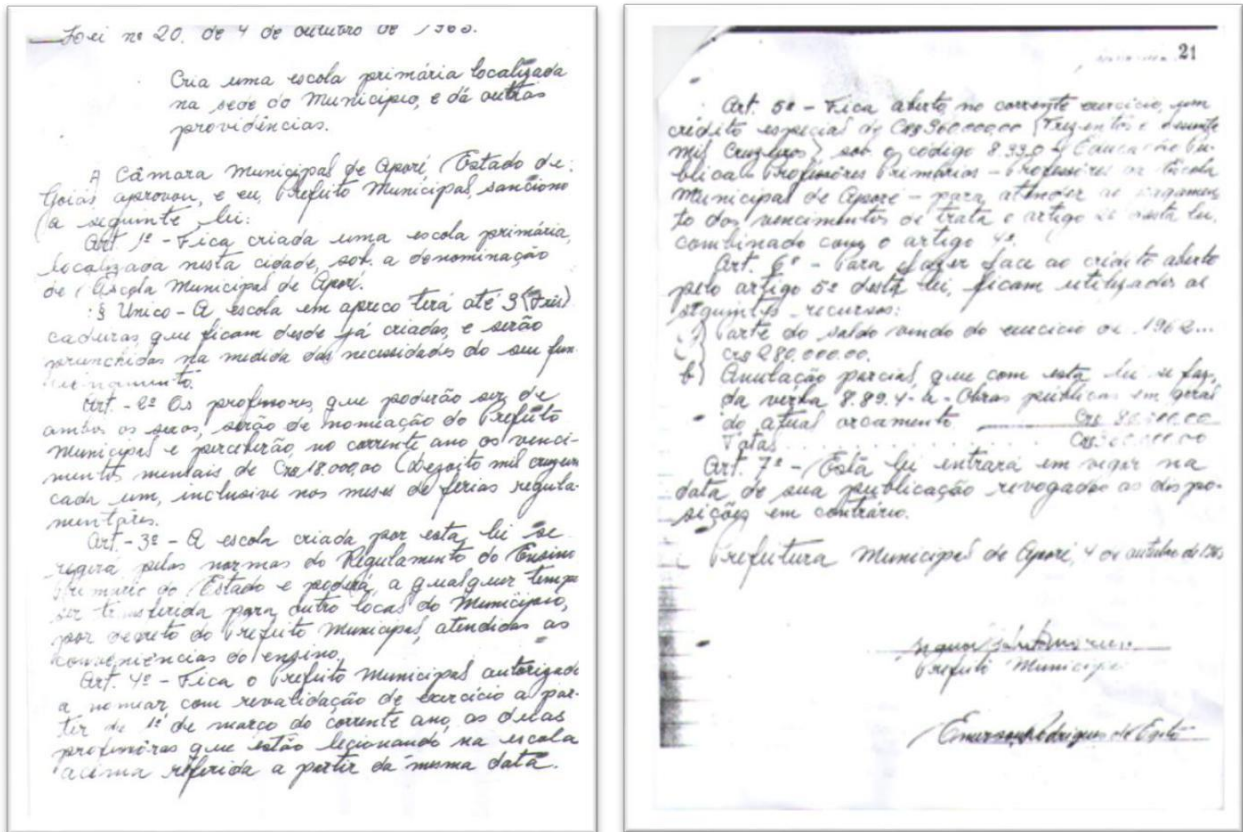 Lei nº 20, de 4 de outubro de 1963.
Cria uma escola primária localizada
na sede do Município, e dá outras
providências.
A Câmara Municipal de Aporé, Estado de
Goiás aprovou, e eu, Prefeito Municipal, sanciono
a seguinte lei:
Art. 1º - Fica criada uma escola primária,
localizada nesta cidade, sob a denominação
de Escola Municipal de Aporé.
§ Unico - A escola em apreco terá até 3 (Três)
cadeiras que ficam desde já criadas, e serão
preenchidas na medida das necessidades do seu fun-
cionamento.
Art. - 2º Os professores, que poderão ser de
ambos os sexos, serão de nomiação do Prefeito
Municipal e perceberão, no corrente ano os venci-
mentos mensais de Cr$ 18.000,00 (Dezoito mil cruzeiros
cada um, inclusive nos meses de férias regula-
mentares.
Art. - 3º - A escola criada por esta lei se
regerá pelas normas do Regulamento do Ensino
Primário do Estado e poderá, a qualquer tempo
ser transferida para outro local do Município,
por decreto do Prefeito Municipal, atendidas as
conveniências do ensino.
Art. 4º - Fica o Prefeito Municipal autorizado
a nomear com revalidação de exercício a par-
tir de 1º de março do corrente ano, as duas
professôras que estão lecionando na escola
acima referida a partir da mesma data.
21
Art. 5º - Fica aberto, no corrente exercício, um
crédito especial de Cr$ 360.000,00 (Trezentos e sessenta
mil Cruzeiros) sob o código 8.33.0 - Educação Pú-
blica - Professôres Primários - Professôres da Escola
Municipal de Aporé - para atender ao pagamen-
to dos vencimentos de trata o artigo 2º desta lei,
combinado com o artigo 4º.
Art. 6º - Para fazer face ao crédito aberto
pelo artigo 5º desta lei, ficam utilizados os
seguintes recursos:
a) Parte do saldo vindo do exercicio de 1962...
Cr$ 280.000.00.
b) Anulação parcial, que com esta lei se faz,
da verba 8.89.4 - a - Obras públicas em geral
do atual orcamento. Cr$ 80.000.00
Total Cr$ 360.000.00
Art. 7º - Esta lei entrará em vigor na
data de sua publicação revogadas as dispo-
sições em contrário.
Prefeitura Municipal de Aporé, 4 de outubro de 1963
Prefeito Municipal
Emerson Rodrigues do